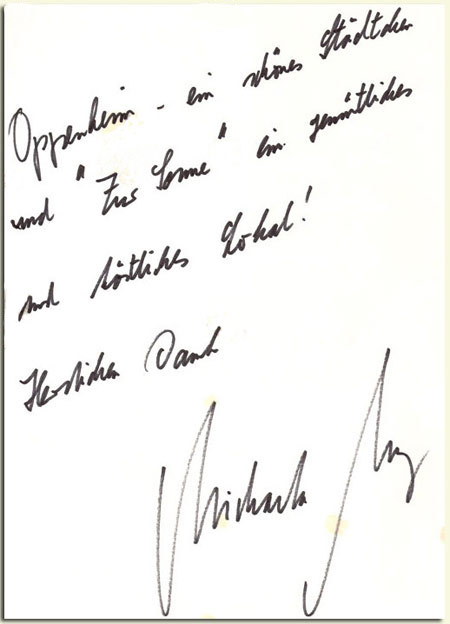 Oppenheim - ein schönes Städtchen
und "Zur Sonne" ein gemütliches
und köstliches Lokal!
Herzlichen Dank
Michaela May